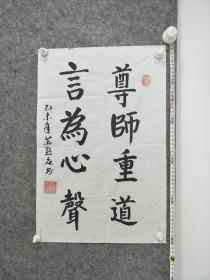 尊師重道
言為心聲
乙未年
书